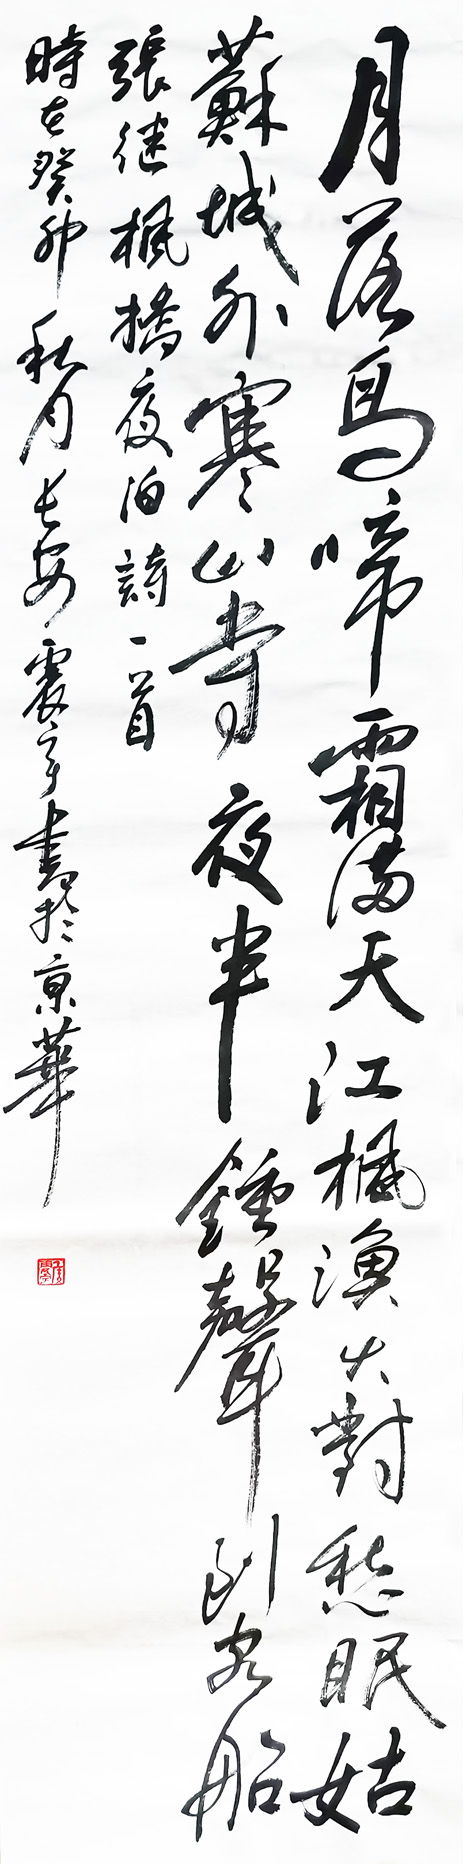 月落烏啼霜滿天江楓漁火對愁眠姑
蘇城外寒山寺夜半鍾聲到客船
張继楓橋夜泊詩一首
時在癸卯秋月长安震宇書於京華